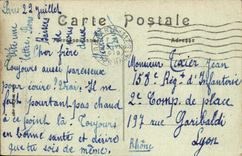 Carte Postale
Paris 22 juillet
Cher frère
Toujours aussi paresseux
pour écrire ? Vrai, il ne
fait pourtant pas chaud
à ce point là. Toujours
en bonne santé et désire
que tu sois de même.
Adresse
Monsieur Texier Jean
158e Rég. d'Infanterie
2e Comp. de place
197 rue Garibaldi
Lyon
Rhône